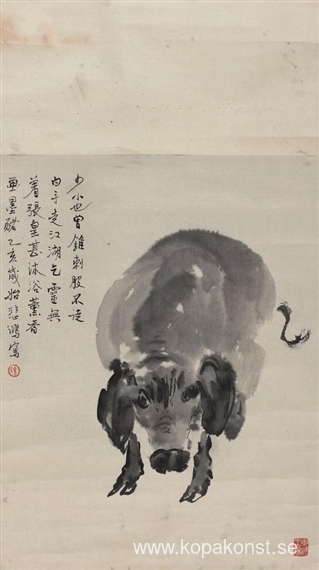 少小也曾錐刺股不徒
白手走江湖乞靈無
着張皇甚沐浴薰香
畫墨豬乙亥歲始悲鴻寫
www.kopakonst.se